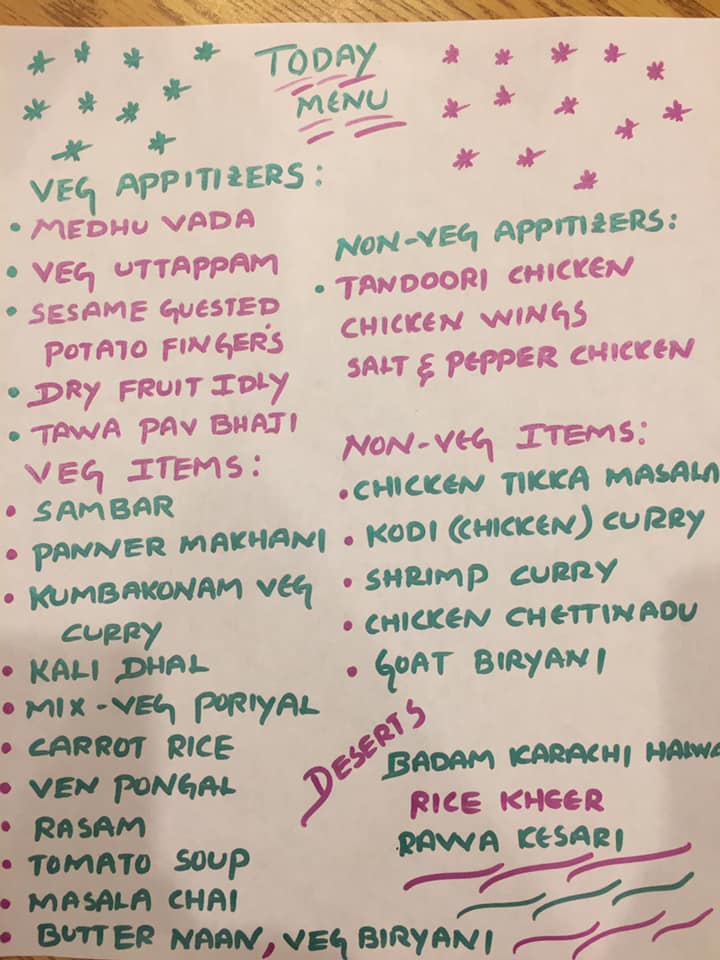 TODAY
MENU
VEG APPITIZERS:
• MEDHU VADA
• VEG UTTAPPAM
• SESAME GUESTED
POTATO FINGER'S
• DRY FRUIT IDLY
• TAWA PAV BHAJI
VEG ITEMS:
• SAMBAR
• PANNER MAKHANI
• KUMBAKONAM VEG
CURRY
• KALI DHAL
• MIX-VEG PORIYAL
• CARROT RICE
• VEN PONGAL
• RASAM
• TOMATO SOUP
• MASALA CHAI
• BUTTER NAAN, VEG BIRYANI
NON-VEG APPITIZERS:
• TANDOORI CHICKEN
CHICKEN WINGS
SALT & PEPPER CHICKEN
NON-VEG ITEMS:
• CHICKEN TIKKA MASALA
• KODI (CHICKEN) CURRY
• SHRIMP CURRY
• CHICKEN CHETTINADU
• GOAT BIRYANI
DESERTS
BADAM KARACHI HALWA
RICE KHEER
RAWA KESARI